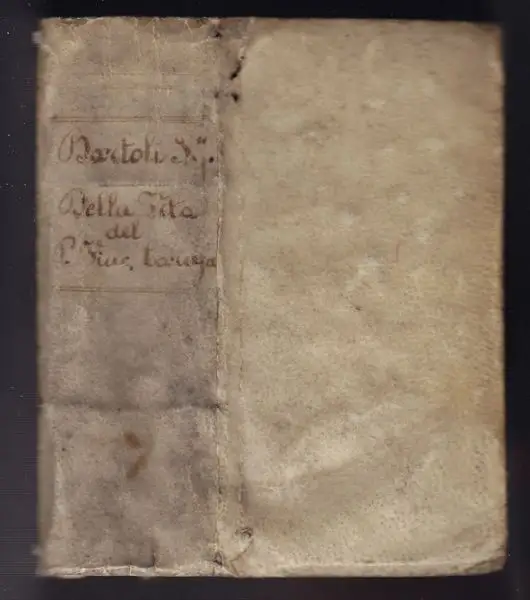 Bartoli
Della Vita
del
P. Vinc. Carafa